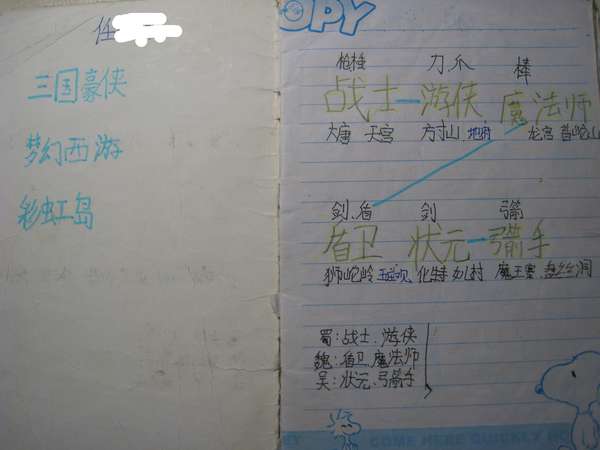 任
三国豪侠
梦幻西游
彩虹岛
OPY
枪锤 刀爪 棒
战士 游侠 魔法师
大唐 天宫 方寸山 地府 龙宫 普陀山
剑、盾 剑 弓箭
盾卫 状元 弓箭手
狮蛇岭 五庄观 化生寺 女儿村 魔王寨 盘丝洞
蜀:战士、游侠
魏:盾卫、魔法师
吴:状元、弓箭手
COME HERE QUICKLY